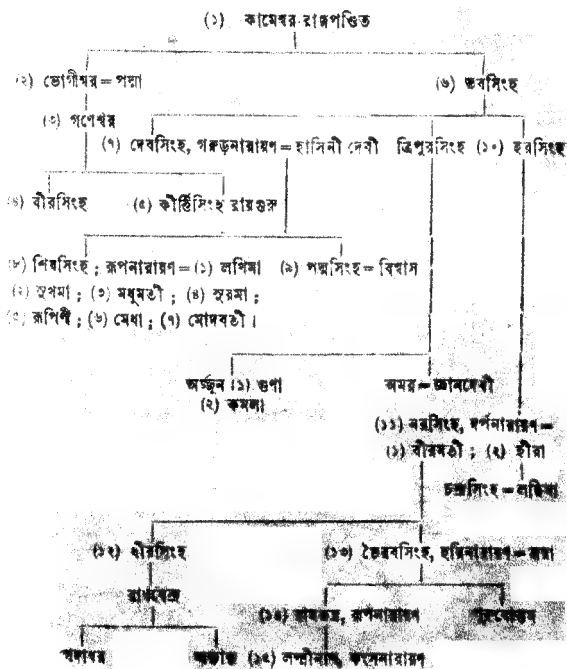 (১) কামেশ্বর রাজপণ্ডিত
(২) ভোগীশ্বর = পদ্মা (৬) ভবসিংহ
(৩) গণেশ্বর
(৭) দেবসিংহ, গরুড়নারায়ণ = হাসিনী দেবী ত্রিপুরসিংহ (১০) হরসিংহ
(৪) বীরসিংহ (৫) কীর্ত্তিসিংহ রায়গুরু
(৮) শিবসিংহ ; রূপনারায়ণ = (১) লখিমা (৯) পদ্মসিংহ = বিশ্বাস
(২) সুখমা ; (৩) মধুমতী ; (৪) সুরমা ;
(৫) রূপিণী ; (৬) মেধা ; (৭) মোদবতী ।
অর্জ্জুন (১) গুণা অমর = জ্ঞানদেবী
(২) কমলা
(১১) নরসিংহ, দর্পনারায়ণ =
(১) বীরমতী ; (২) হীরা
চন্দ্রসিংহ = লছিমা
(১২) ধীরসিংহ (১৩) ভৈরবসিংহ, হরিনারায়ণ = জয়া
রাঘবেন্দ্র
(১৪) রামভদ্র, রূপনারায়ণ পুরুষোত্তম
গদাধর (১৫) লক্ষ্মীনাথ, কংসনারায়ণ